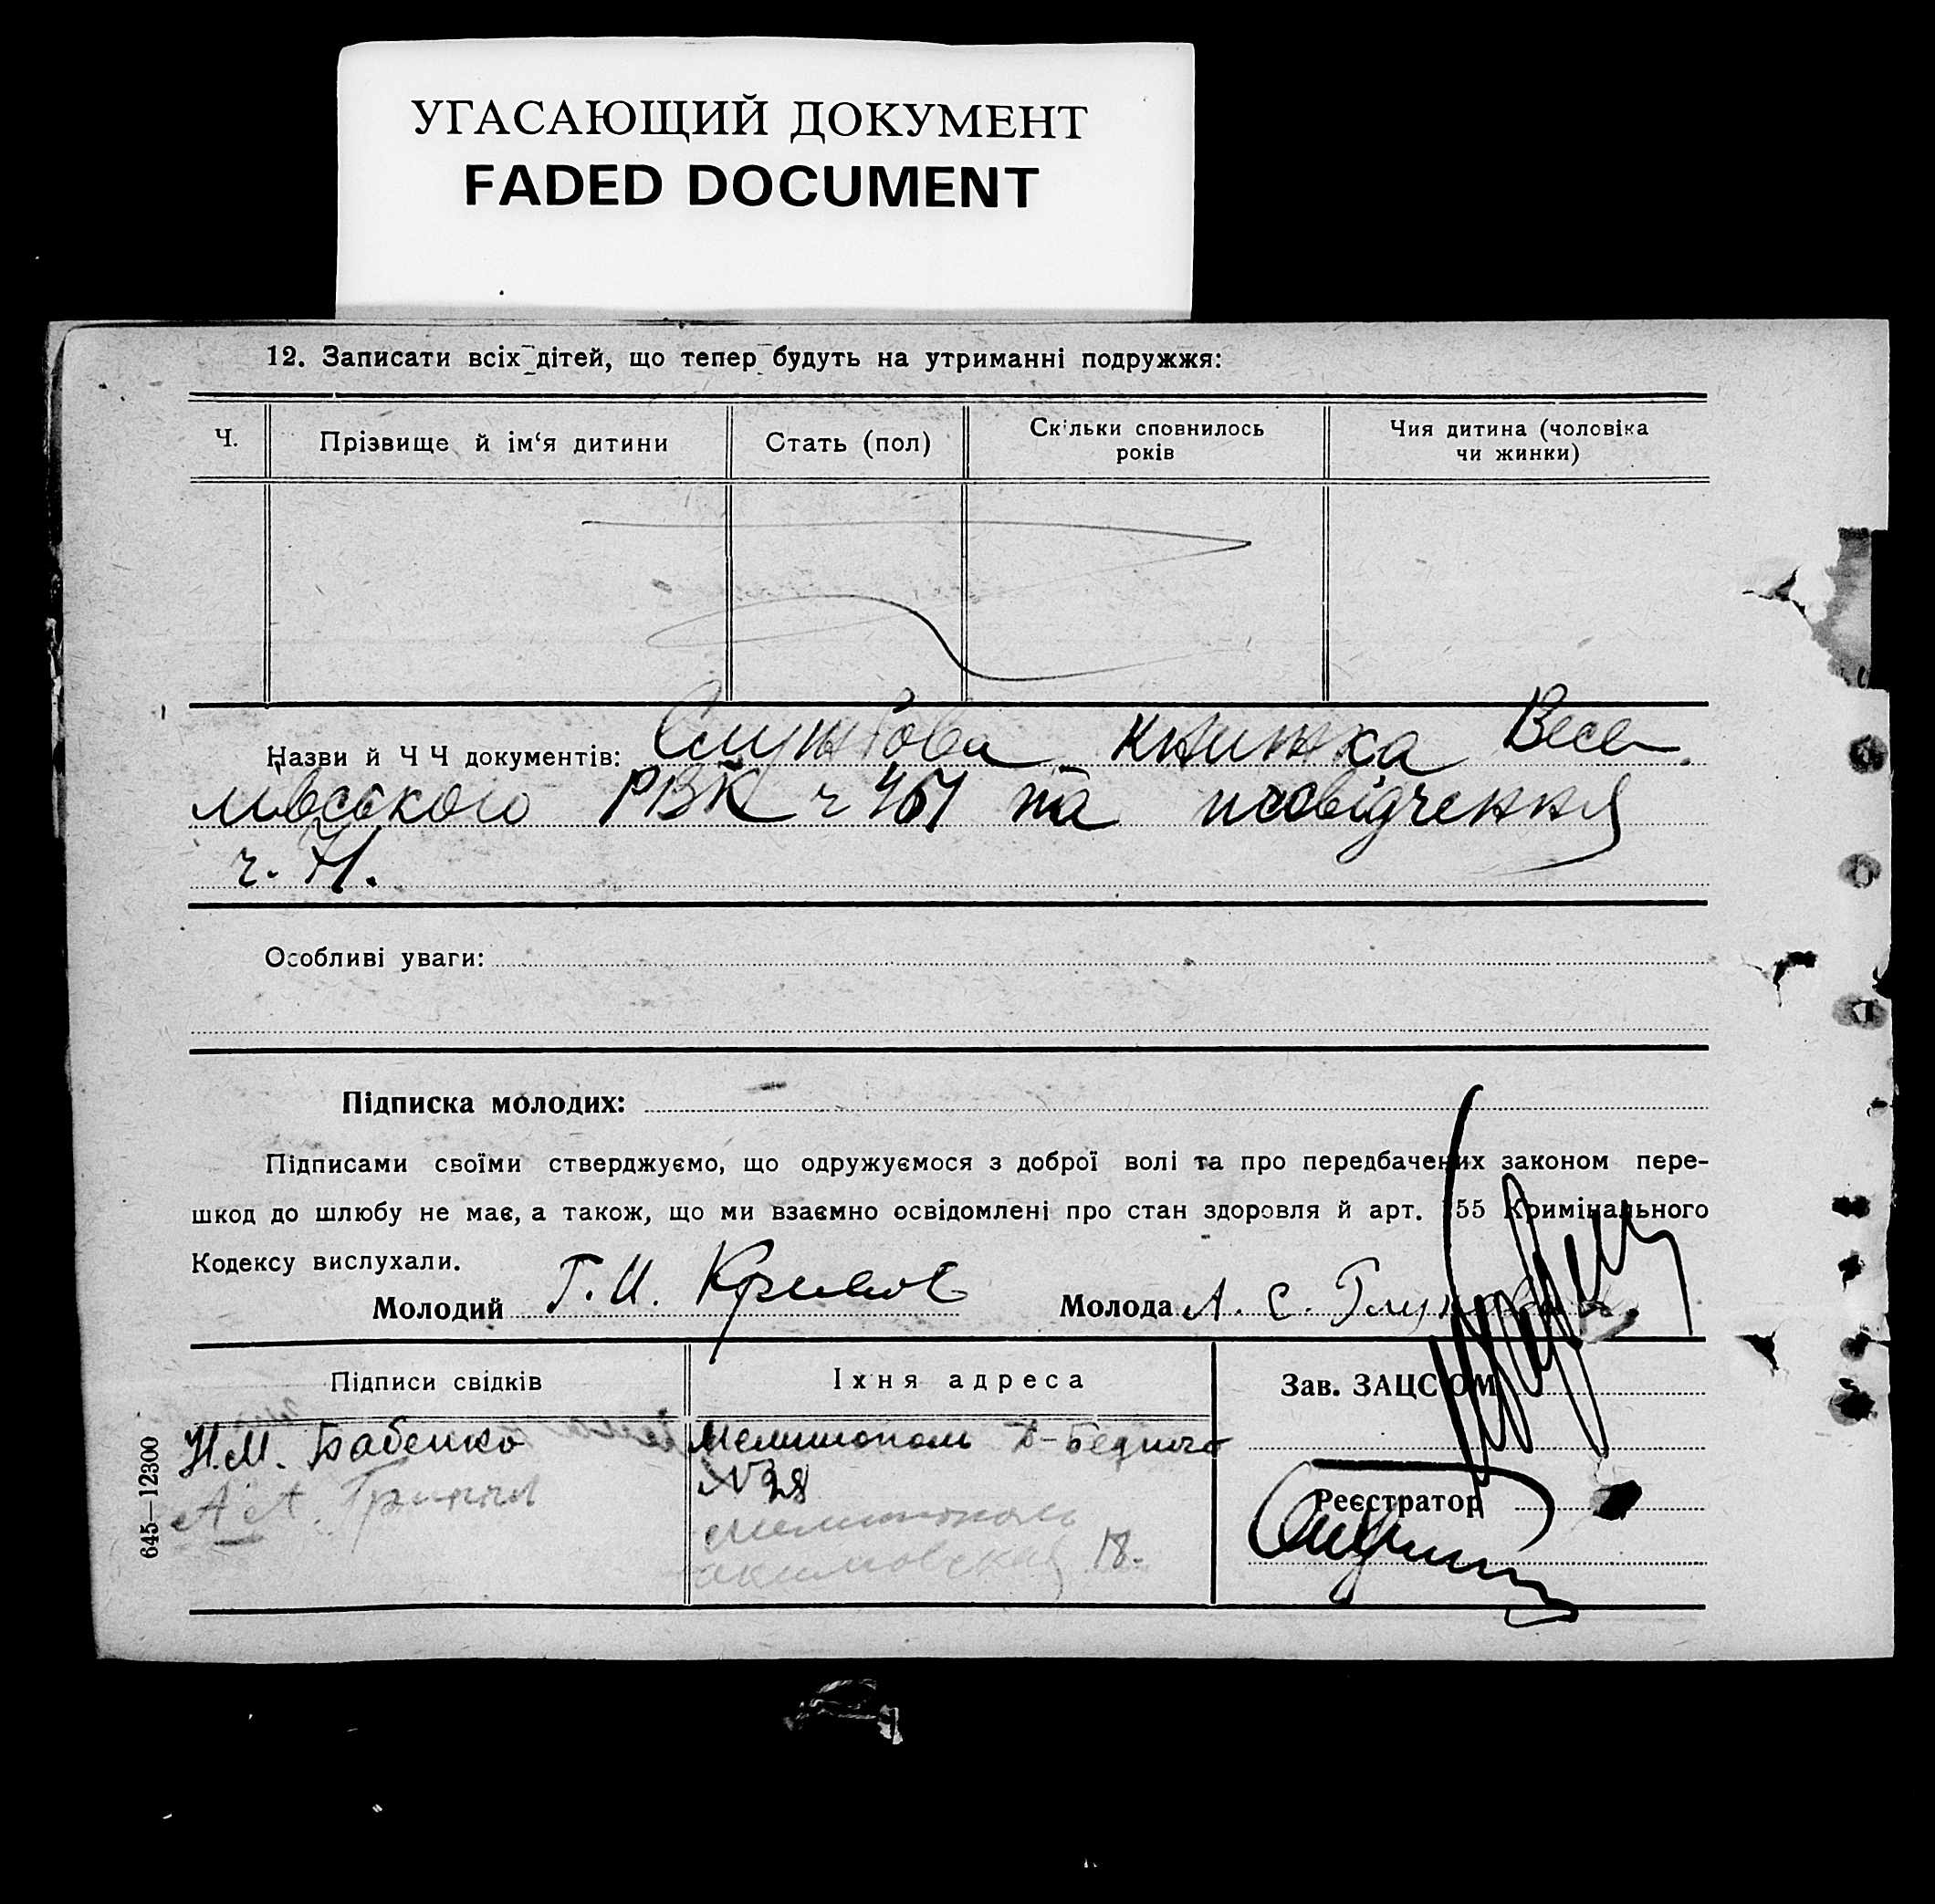 УГАСАЮЩИЙ ДОКУМЕНТ
FADED DOCUMENT
12. Записати всіх дітей, що тепер будуть на утриманні подружжя:
Ч.
Прізвище й ім‘я дитини
Стать (пол)
Скільки сповнилось
років
Чия дитина (чоловіка
чи жинки)
Назви й Ч Ч документів: Службова книжка Весе-
лівського РВК ч 461 та посвідчення
ч. 71.
Особливі уваги:
Підписка молодих:
Підписами своїми стверджуємо, що одружуємося з доброї волі та про передбачених законом пере-
шкод до шлюбу не має, а також, що ми взаємно освідомлені про стан здоровля й арт. 155 Кримінального
Кодексу вислухали.
Молодий Г. И. Кривов
Молода А. С.
Підписи свідків
Їхня адреса
Зав. ЗАЦС'ОМ
Н.М. Бабенко
Мелитополь Д-Бедного
№ 28
А. А.
Мелитополь
акимовская 18.
Реєстратор
645—12300